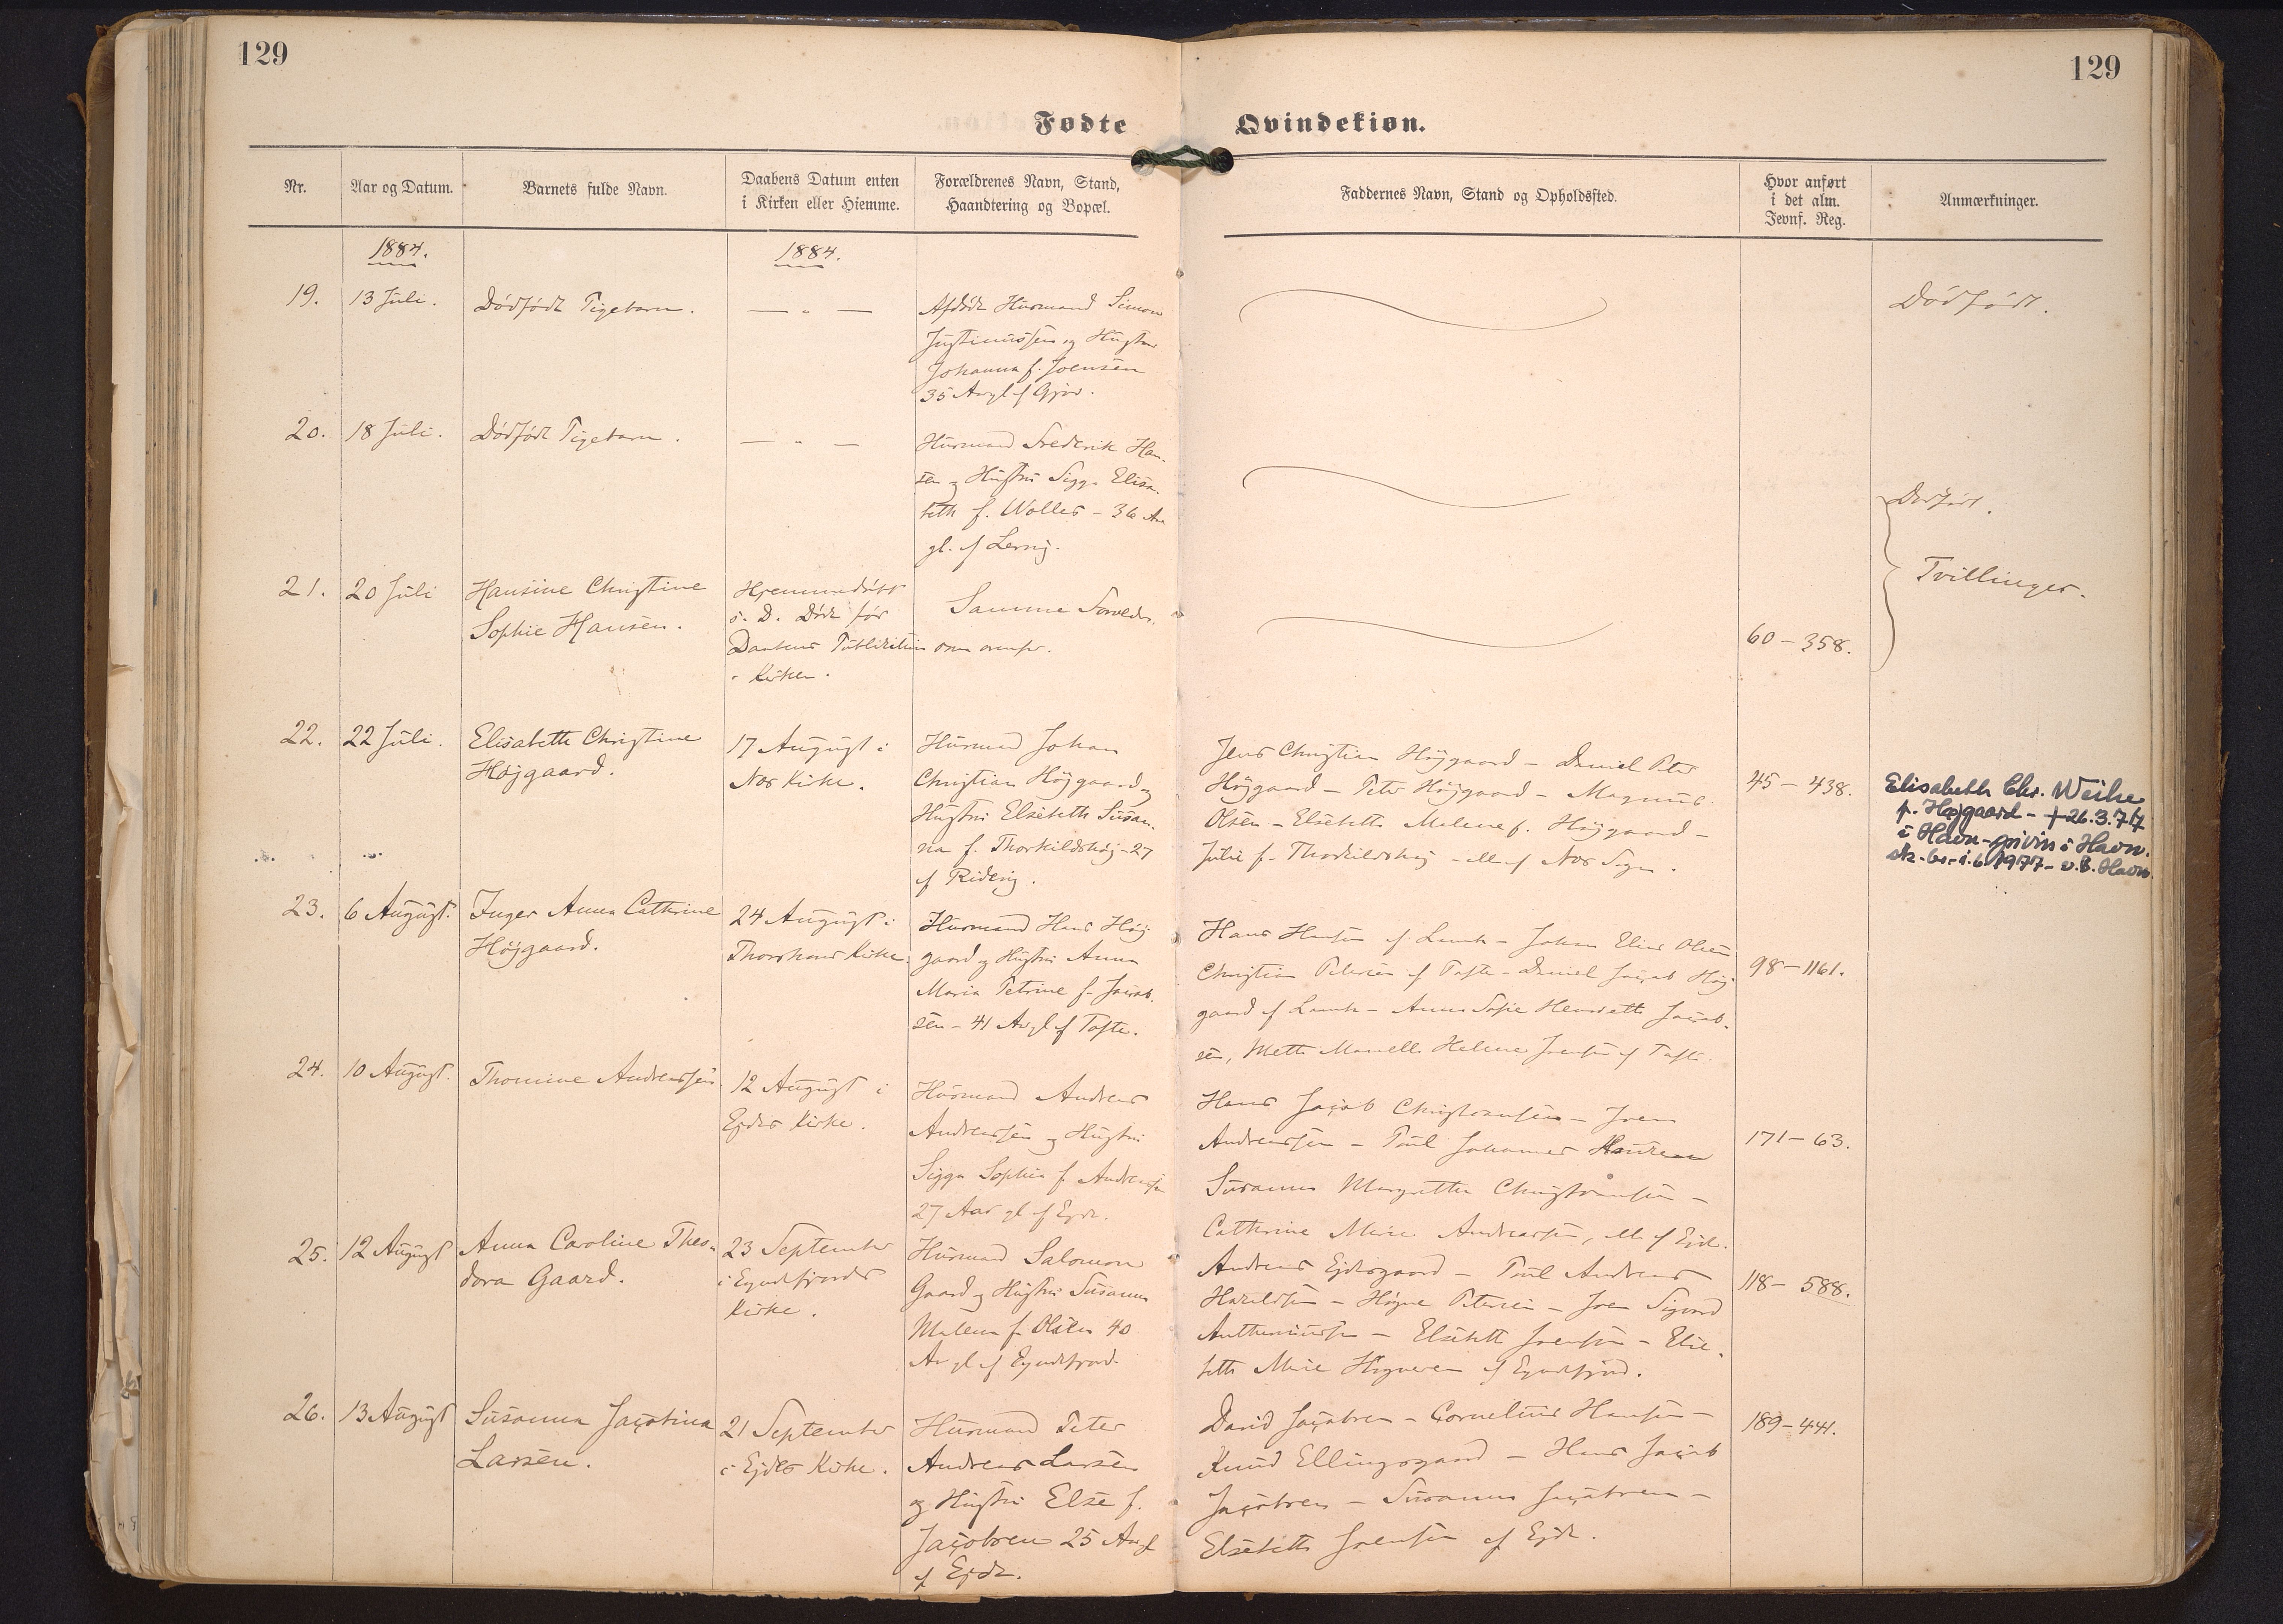 129
129
Fødte
Qvindekiøn.
Nr.
Aar og Datum.
Barnets fulde Navn.
Daabens Datum enten
i Kirken eller Hiemme.
Forældrenes Navn, Stand,
Haandtering og Bopæl.
Faddernes Navn, Stand og Opholdssted.
Hvor anført
i det alm.
Jevnf. Reg.
Anmærkninger.
1884.
1884.
19.
13 Juli.
Dødfødt Pigebarn.
— " —
Afdøde Husmand Simon
Justinussen og Hustru
Johanna f. Joensen
35 Aar gl. af Gjov.
Dødfødt.
20.
18 Juli.
Dødfødt Pigebarn.
— " —
Husmand Frederik Han-
sen og Hustru Sigga Elisa-
beth f. Wolles - 36 Aar
gl. af
Dødfødt.
Tvillinger.
21.
20 Juli
Hansine Christine
Sophie Hansen.
Hjemmedøbt
s. D. Døde før
Daabens Publikation
i Kirken.
Samme Forældre
som ovenfor.
60 - 358.
22.
22 Juli.
Elisabeth Christine
Højgaard.
17 August i
Nes Kirke.
Husmand Johan
Christian Højgaard og
Hustru Elsebeth Susan-
na f. Thorkildshøj - 27
af
Jens Christian Højgaard - Daniel Peter
Højgaard - Peter Højgaard - Magnus
Olsen - Elsebeth Malene f. Højgaard -
Julie f. Thorkildshøj - alle af Nes Sogn.
45 - 438.
Elisabeth Chr. Weihe
f. Højgaard - + 26.3.77
i Havn - i Havn.
1977 - Havn
23.
6 August.
Inger Anna Cathrine
Højgaard.
24 August i
Thorshavns Kirke.
Husmand Hans Høj-
gaard og Hustru Anna
Maria Petrine f. Jacob-
sen - 41 Aar gl. af Tofte.
Hans Hansen af Lamb - Johan Elias Olsen
Christian Petersen af Tofte - Daniel Jacob Høj-
gaard af Lamb - Anna Sofie Henriette Jacob-
sen, Mette Helene Joensen af Tofte.
98 - 1161.
24.
10 August.
Thomine Andreassen.
12 August i
Ejdes Kirke.
Husmand Andreas
Andreassen og Hustru
Sigga Sophia f. Andreassen
27 Aar gl. af Ejde.
Hans Jacob Christiansen - Joen
Andreassen - Poul Johannes Hansen
Susanna Margretha Christiansen -
Cathrine Marie Andreassen, alle af Ejde.
171 - 63.
25.
12 August
Anna Caroline Theo-
dora Gaard.
23 September
i Fundefjords
Kirke.
Husmand Salomon
Gaard og Hustru Susanna
Malena f. Olsen 40
Aar gl. af
Andreas Ejdesgaard - Poul Andreas
Haraldsen - Høgne Petersen - Joen Sigvard
- Elsebeth Joensen - Else-
beth Marie Høgnesen af
118 - 588.
26.
13 August
Susanna Jacobina
Larsen.
21 September
i Ejdes Kirke.
Husmand Peter
Andreas Larsen
og Hustru Else f.
Jacobsen 25 Aar gl.
af Ejde.
David Jacobsen - Cornelius Hansen -
Knud Ellingsgaard - Hans Jacob
Jacobsen - Susanna Jacobsen -
Elsebeth Joensen af Ejde.
189 - 441.